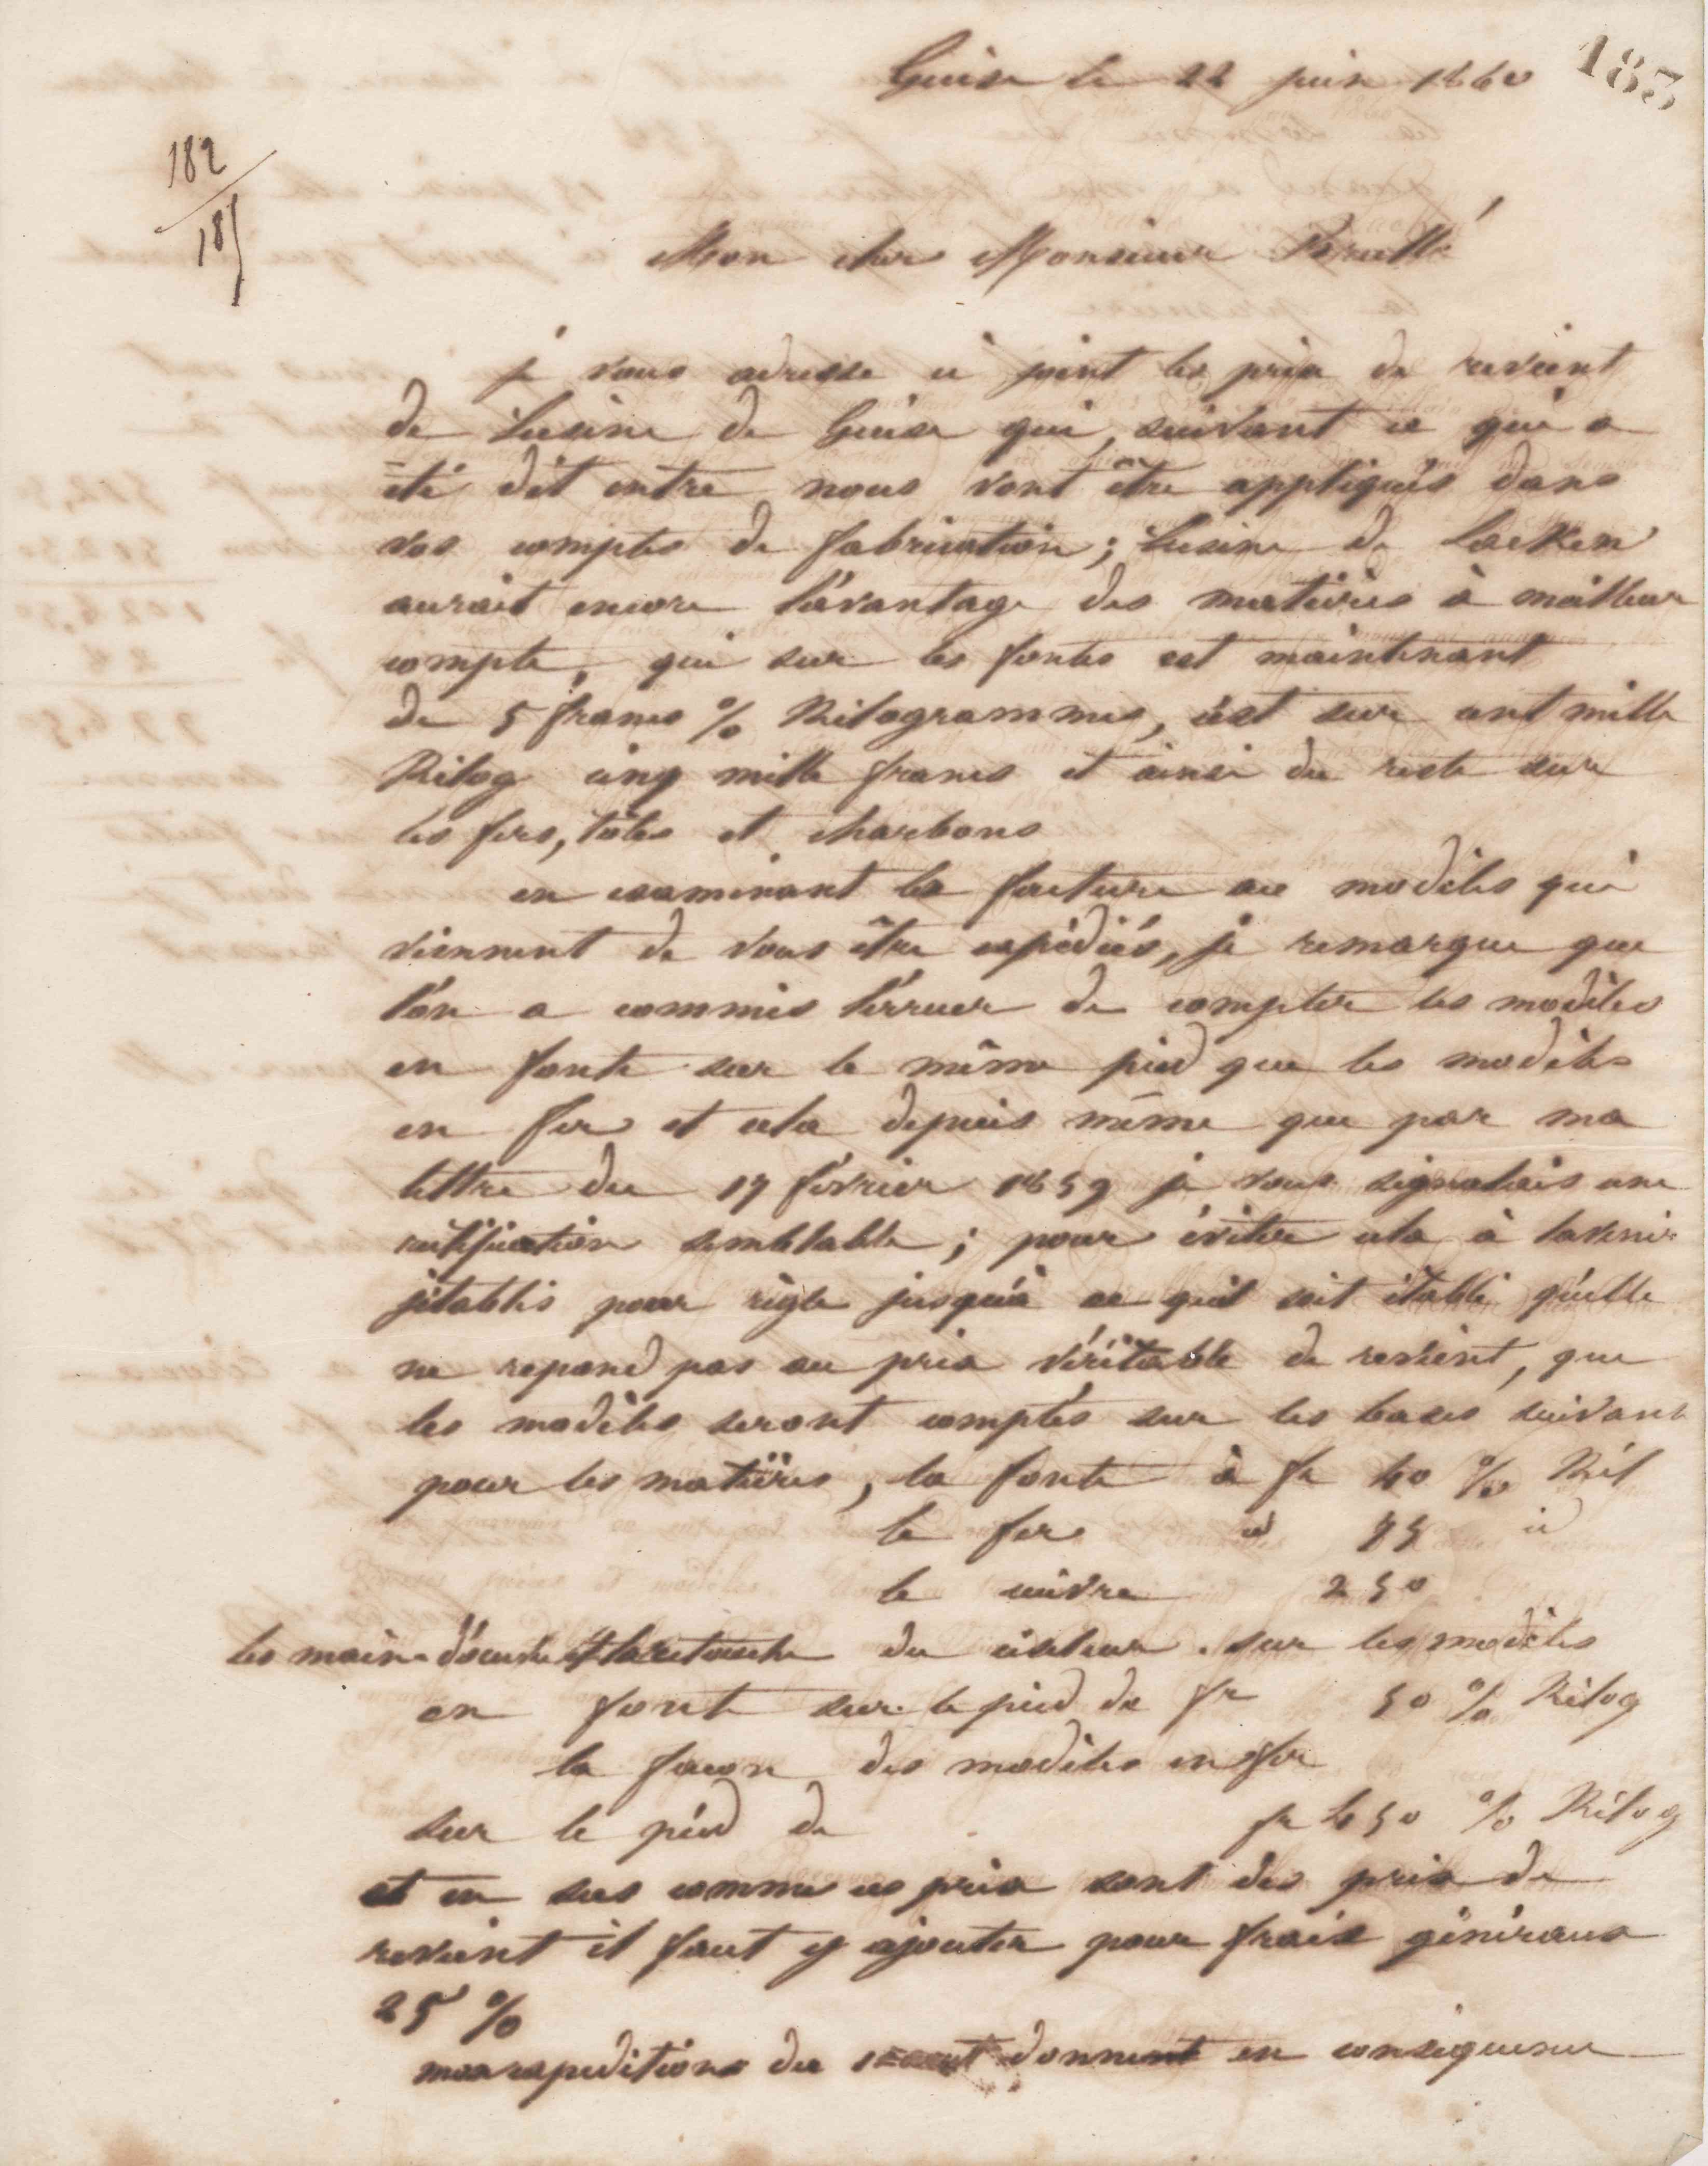 183
Guise le 22 juin 1860
182
185
Mon cher Monsieur Brullé
je vous adresse ci joint les prix de revient
de lusine de Guise qui, suivant ce qui a
été dit entre nous vont être appliqués dans
vos comptes de fabrication; lusine de Laeken
aurait encore l'avantage des matières à meilleur
compte, qui sur les fontes est maintenant
de 5 francs % Kilogrammes, c'est sur cent mille
Kilog cinq mille francs et ainsi du reste sur
les fers, tôles et charbons
en examinant la facture aux modèles qui
viennent de vous être expédiés, je remarque que
l'on a commis l'erreur de compter les modèles
en fonte sur le même pied que les modèles
en fer et cela depuis même que par ma
lettre du 17 février 1859 je vous signalais une
rectification semblable; pour éviter cela à lavenir
jétablis pour règle jusqu'à ce quil soit établi qu'elle
ne repond pas au prix véritable de revient, que
les modèles seront comptés sur les bases suivant
pour les matières, la fonte à fr 40 % Kil
le fer id 75 id
le cuivre 250
les main d'oeuvre et la retouche du ciseleur sur les modèles
en fonte sur le pied de fr 50 % Kilog
la facon des modèles en fer
sur le pied de fr 450 % Kilog
et en sus comme ces prix sont des prix de
revient il faut y ajouter pour frais généraux
25 %
mes expeditions du donnent en conséquence